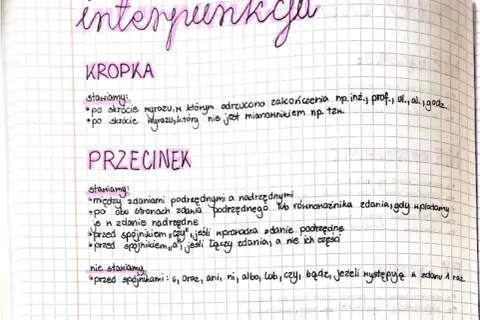 interpunkcja
KROPKA
stawiamy:
*po skrócie wyrazu, w którym odrzucono zakończenia np. inż., prof., ul., al., godz.
*po skrócie wyrazu, który nie jest mianownikiem np. tzn.
PRZECINEK
stawiamy:
*między zdaniami podrzędnymi a nadrzędnymi
*po obu stronach zdania podrzędnego lub równoważnika zdania, gdy wplatamy
je w zdanie nadrzędne
*przed spójnikiem „czy", jeśli wprowadza zdanie podrzędne
*przed spójnikiem „a", jeśli łączy zdania, a nie ich części
nie stawiamy
*przed spójnikami: i, oraz, ani, ni, albo, lub, czy, bądź, jeżeli występują w zdaniu 1 raz.